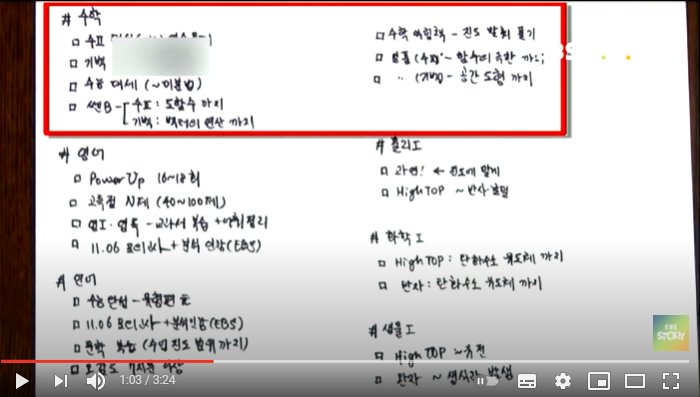 # 수학
□ 수II
□ 기벡
□ 수능 대세 (~미분법)
□ 쎈B - 수II : 도함수 까지
기벡 : 벡터의 연산 까지
□ 수학 익힘책 - 진도 맞춰 풀기
(수II) - 함수의 극한 까지
□ 〃 (기벡) - 공간도형 까지
# 영어
□ Power Up 16~18회
□ N제 (40~100제)
□ 영I · 영독 - 교과서 복습 + 어휘정리
□ 11.06 모의고사 + 분석 인강(EBS)
# 언어
□ 수능 - 유형편 完
□ 11.06 모의고사 + 분석인강(EBS)
□ 문학 복습 (수업진도 범위까지)
□ 이상
# 물리I
□ 과연! ← 진도에 맞게
□ High TOP ~
# 화학I
□ High TOP : 탄화수소 유도체 까지
□ 완자 : 탄화수소 유도체 까지
# 생물I
□ High TOP ~유전
□ 완자 ~ 생식과 발생
EBS
STORY
1:03 / 3:24